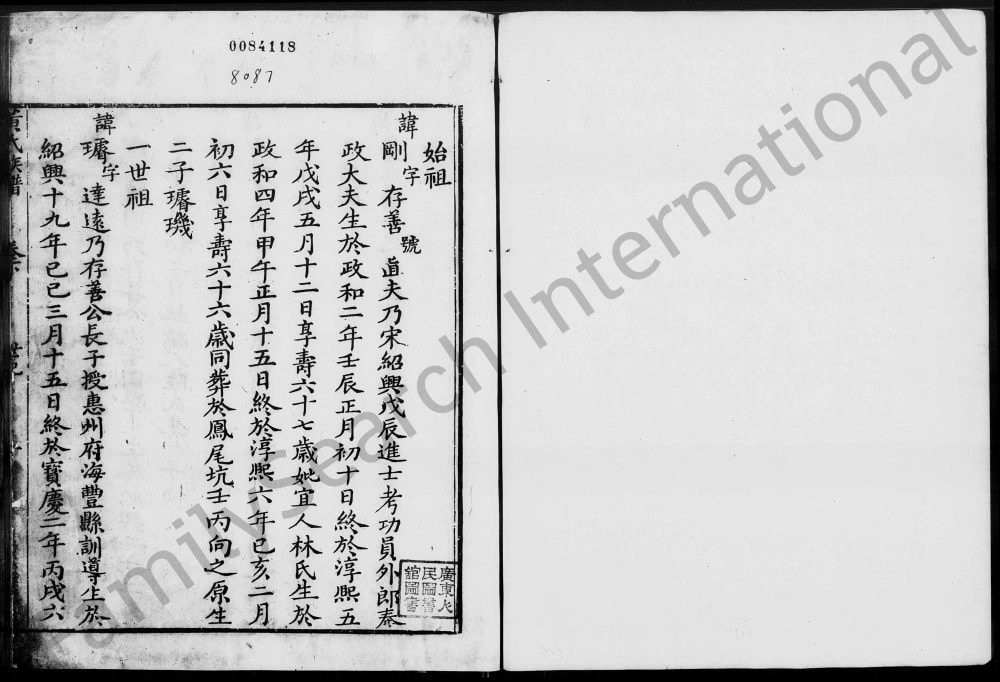 0084118
8087
始祖
諱剛字存善號直夫乃宋紹興戊辰進士考功員外郎奉
政大夫生於政和二年壬辰正月初十日終於淳熙五
年戊戌五月十二日享壽六十七歲妣宜人林氏生於
政和四年甲午正月十五日終於淳熙六年己亥二月
初六日享壽六十六歲同葬於鳳尾坑壬丙向之原生
二子璿璣
一世祖
諱璿字達遠乃存善公長子授惠州府海豐縣訓導生於
紹興十九年己巳三月十五日終於寶慶二年丙戌六
黃氏族譜
廣東人
民圖書
館圖書
FamilySearch International